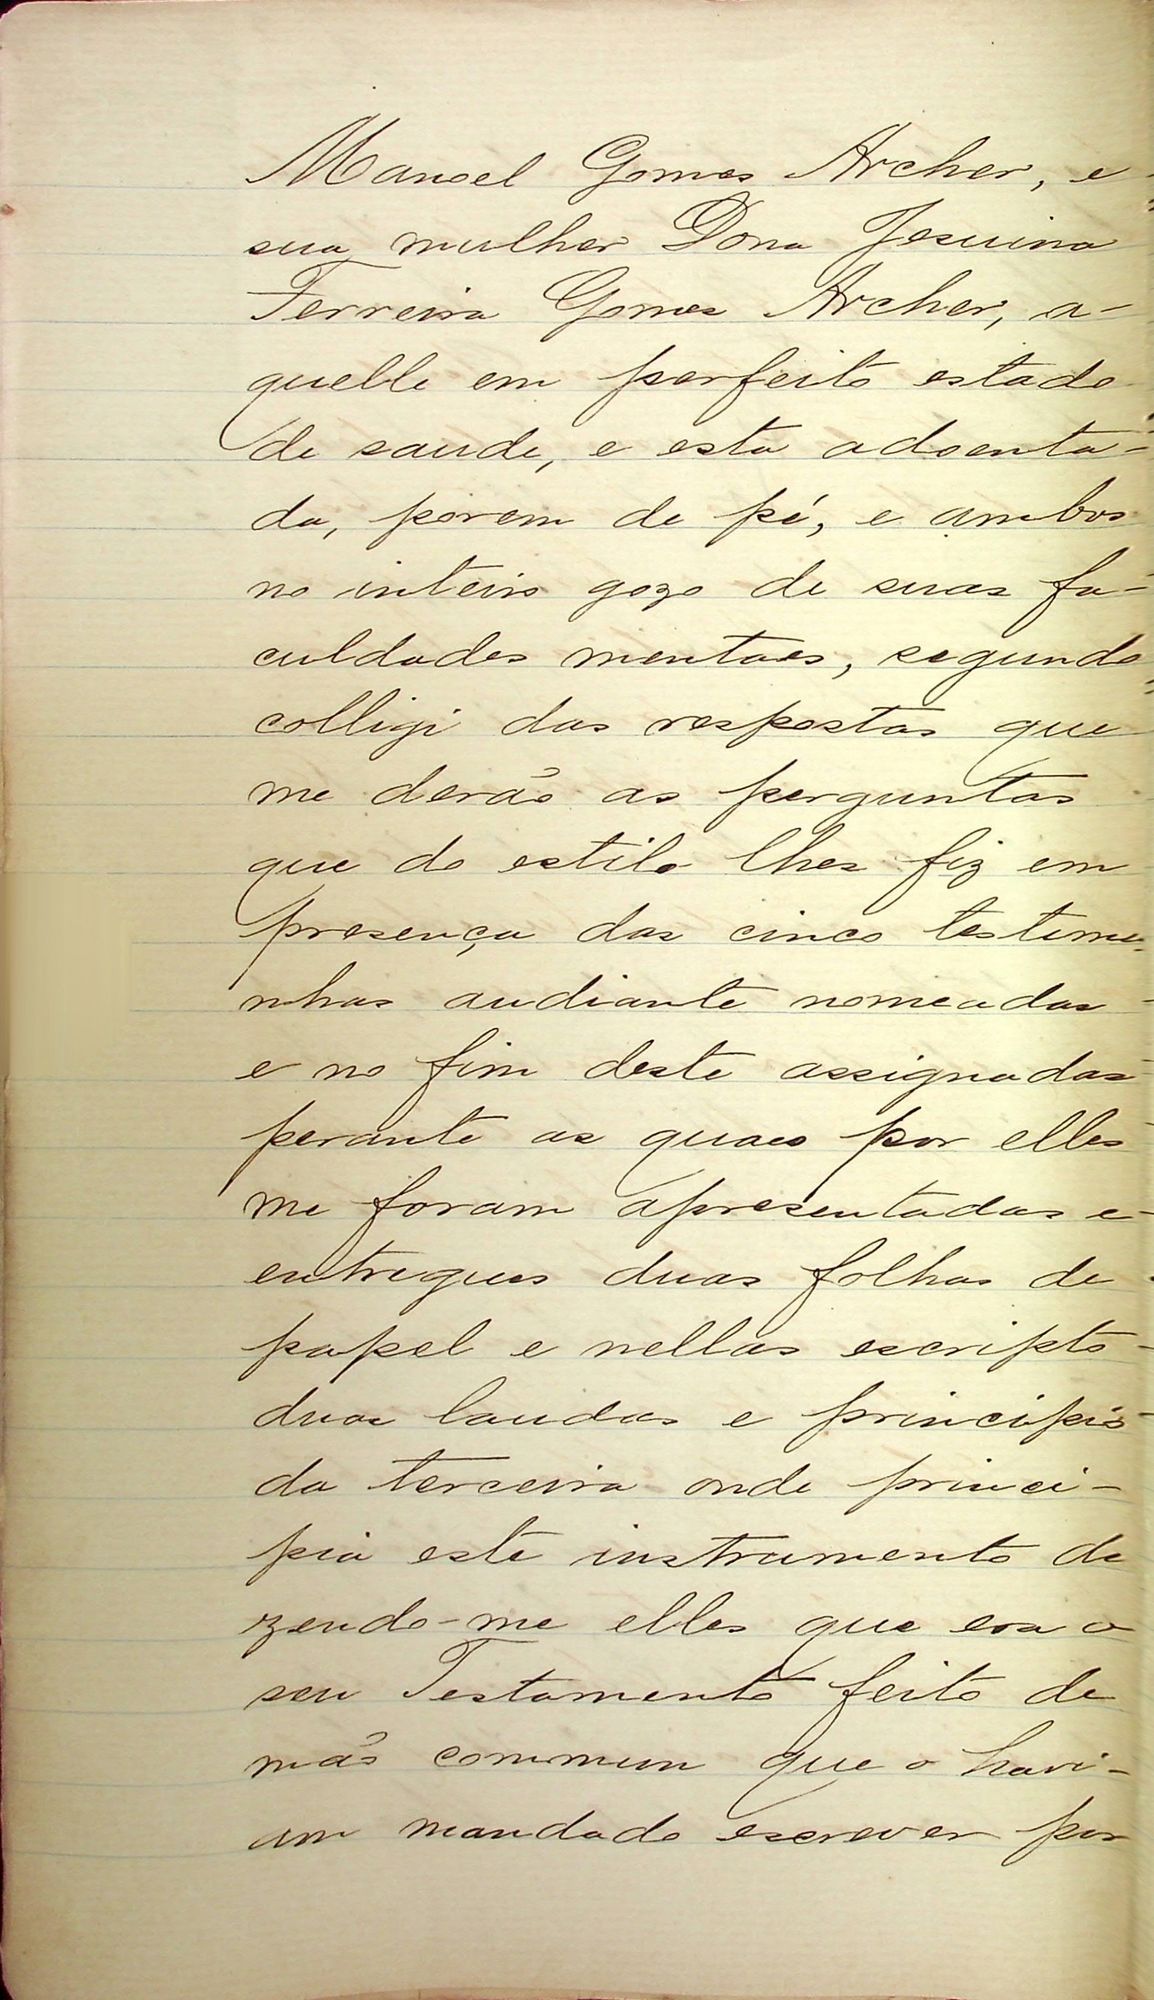 Manoel Gomes Archer, e
sua mulher Dona Jesuina
Ferreira Gomes Archer, a-
quelle em perfeito estado
de saude, e esta adoenta-
da, porem de pé, e ambos
no inteiro gozo de suas fa-
culdades mentaes, segundo
colligi das respostas que
me derão as perguntas
que do estilo lhes fiz em
presença das cinco testemu-
nhas audiante nomeadas
e no fim deste assignadas
perante as quaes por elles
me foram apresentadas e
entregues duas folhas de
papel e nellas escripto
duas laudas e principio
da terceira onde princi-
pia este instrumento de
zendo-me elles que era o
seu Testamento feito de
mão commun que o havi-
am mandado escrever por